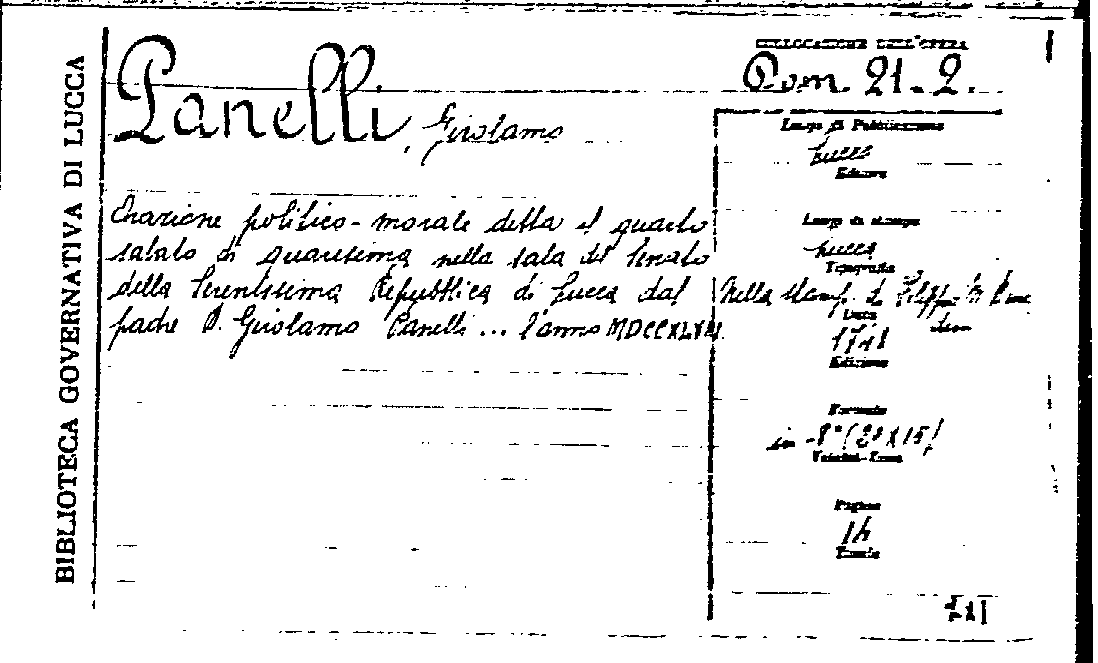 BIBLIOTECA GOVERNATIVA DI LUCCA
COLLOCAZIONE DELL'OPERA
Pom. 21-2.
Panelli, Girolamo
Orazione politico-morale detta il quarto
sabato di quaresima nella sala del Senato
della Serenissima Repubblica di Lucca dal
padre D. Girolamo Panelli ... l'anno
Luogo di Pubblicazione
Lucca
Editore
Luogo di stampa
Lucca
Tipografia
Nella stamp. di
Data
Edizione
Formato
in-8°
Pagine
Tavole